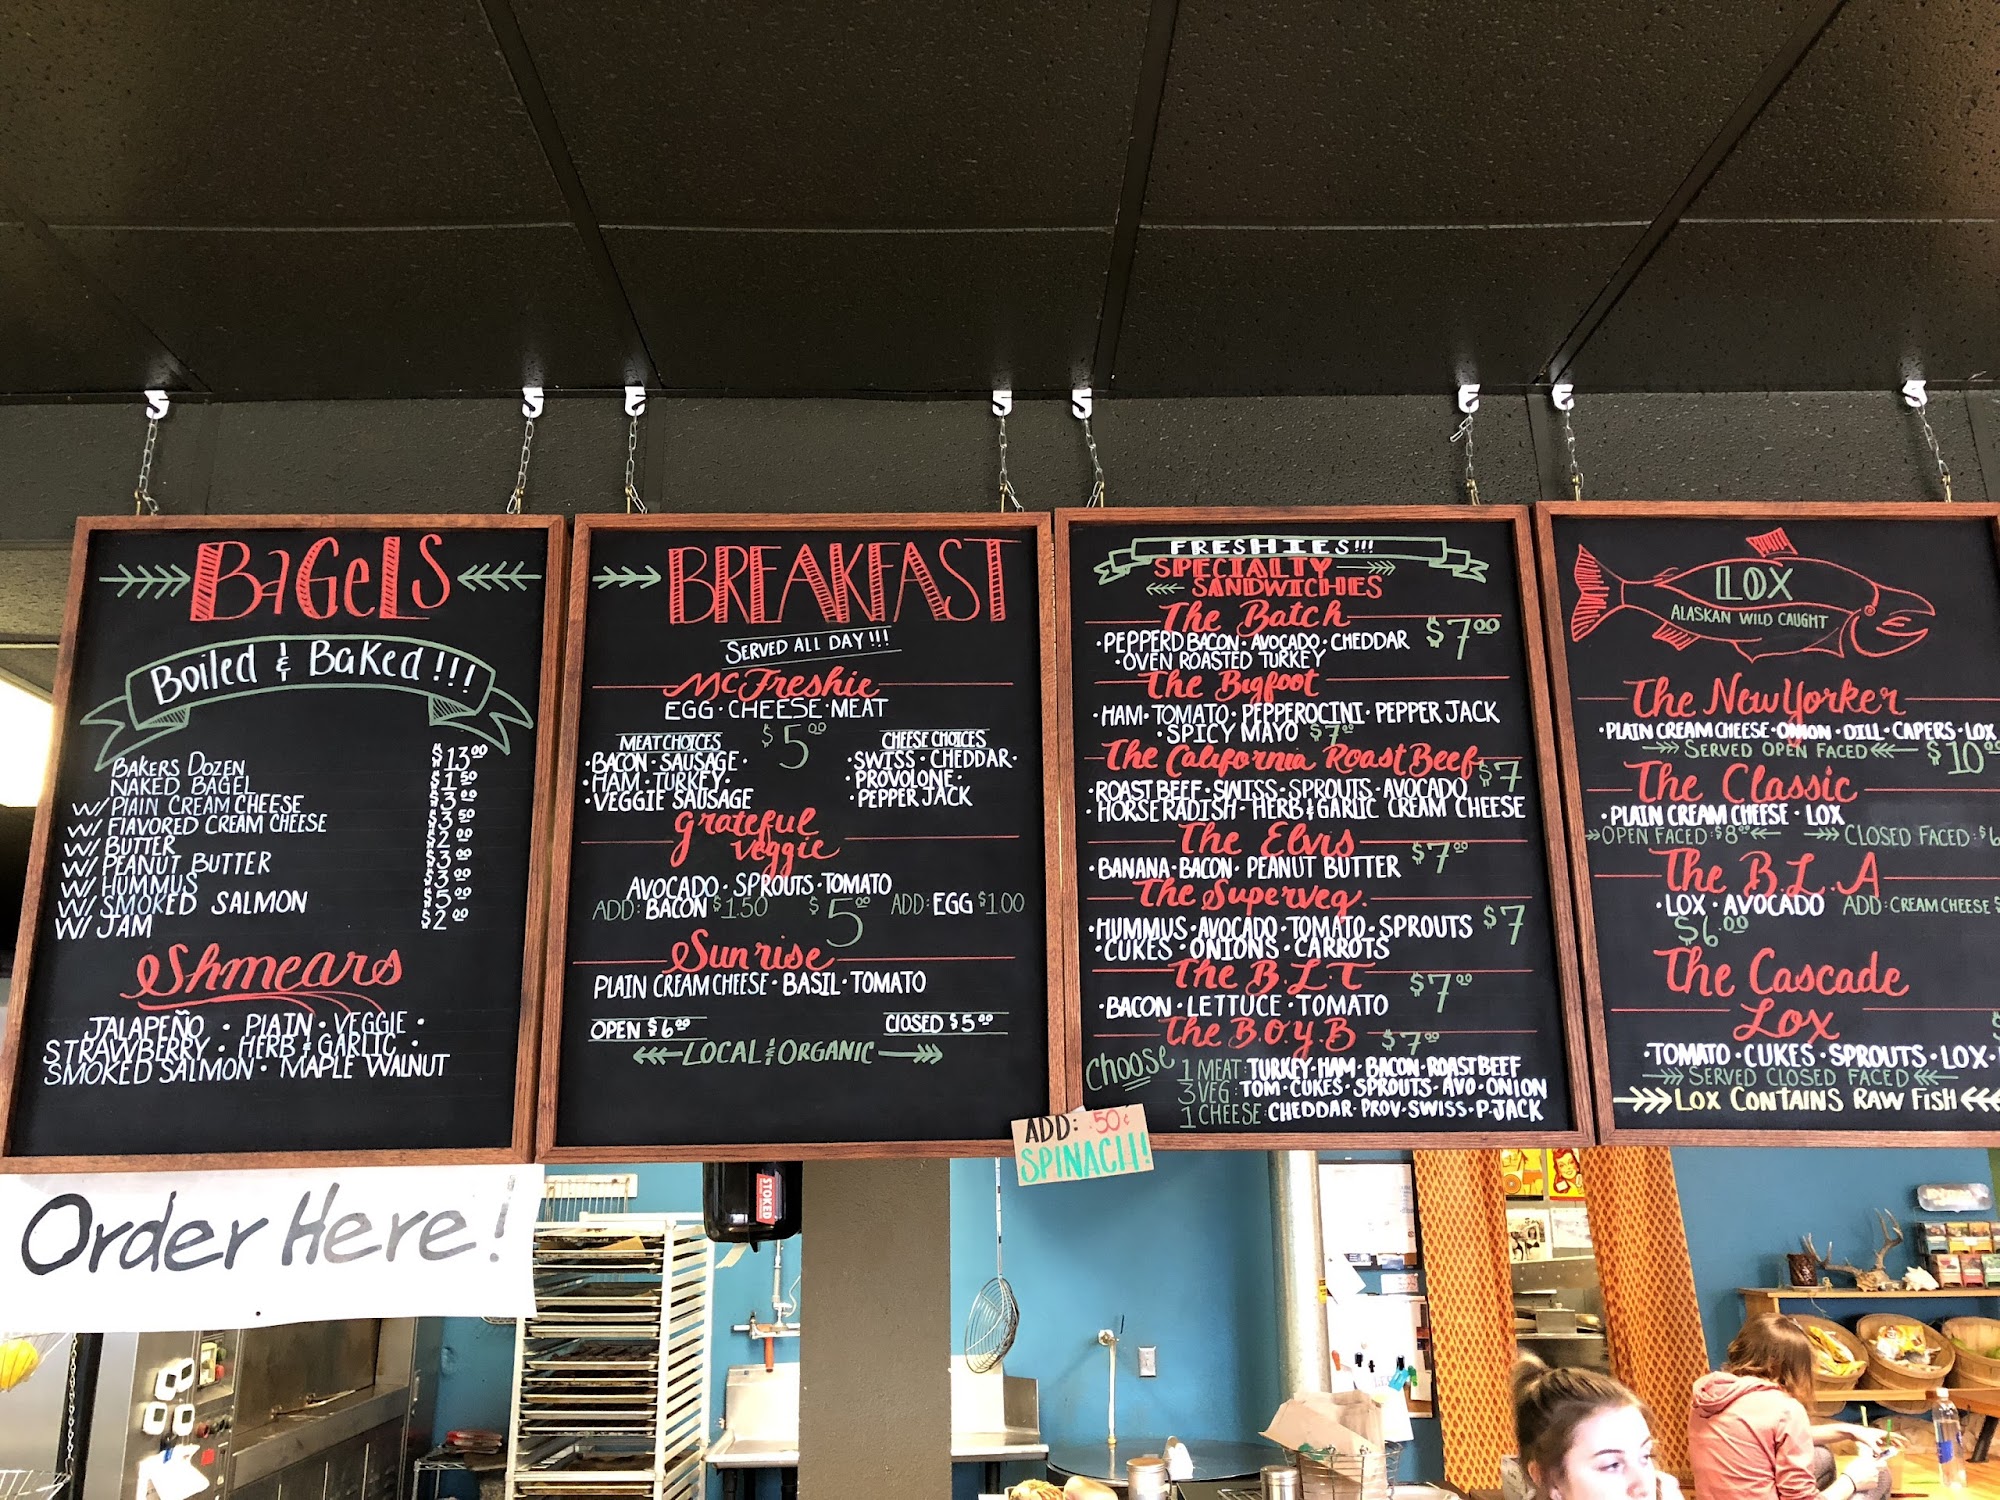 BAGELS
Boiled & Baked!!!
BAKERS DOZEN $13.00
NAKED BAGEL $1.50
W/ PLAIN CREAM CHEESE $3.00
W/ FLAVORED CREAM CHEESE $3.50
W/ BUTTER $2.00
W/ PEANUT BUTTER $3.00
W/ HUMMUS $3.00
W/ SMOKED SALMON $5.00
W/ JAM $2.00
Shmears
JALAPEÑO • PLAIN • VEGGIE •
STRAWBERRY • HERB & GARLIC •
SMOKED SALMON • MAPLE WALNUT
Order Here!
BREAKFAST
SERVED ALL DAY!!!
McFreshie
EGG • CHEESE • MEAT
$5.00
MEAT CHOICES
• BACON • SAUSAGE •
• HAM • TURKEY •
• VEGGIE SAUSAGE
CHEESE CHOICES
• SWISS • CHEDDAR •
• PROVOLONE •
• PEPPER JACK
grateful
veggie
AVOCADO • SPROUTS • TOMATO
ADD: BACON $1.50 $5.00 ADD: EGG $1.00
Sunrise
PLAIN CREAM CHEESE • BASIL • TOMATO
OPEN $6.00 CLOSED $5.00
LOCAL & ORGANIC
FRESHIES!!!
SPECIALTY
SANDWICHES
The Batch $7.00
• PEPPERD BACON • AVOCADO • CHEDDAR
• OVEN ROASTED TURKEY
The Bigfoot
• HAM • TOMATO • PEPPEROCINI • PEPPER JACK
• SPICY MAYO $7.00
The California Roast Beef $7
• ROAST BEEF • SWISS • SPROUTS • AVOCADO
• HORSERADISH • HERB & GARLIC CREAM CHEESE
The Elvis $7.00
• BANANA • BACON • PEANUT BUTTER
The Superveg.
• HUMMUS • AVOCADO • TOMATO • SPROUTS $7
• CUKES • ONIONS • CARROTS
The B.L.T $7.00
• BACON • LETTUCE • TOMATO
The B.O.Y.B $7.00
CHOOSE
1 MEAT: TURKEY • HAM • BACON • ROAST BEEF
3 VEG: TOM • CUKES • SPROUTS • AVO • ONION
1 CHEESE: CHEDDAR • PROV • SWISS • P. JACK
ADD: .50¢
SPINACH!
LOX
ALASKAN WILD CAUGHT
The NewYorker
• PLAIN CREAM CHEESE • ONION • DILL • CAPERS • LOX
SERVED OPEN FACED $10.00
The Classic
• PLAIN CREAM CHEESE • LOX
OPEN FACED: $8.00 CLOSED FACED: $6
The B.L.A
• LOX • AVOCADO ADD: CREAM CHEESE $
$6.00
The Cascade
Lox $
• TOMATO • CUKES • SPROUTS • LOX •
SERVED CLOSED FACED
LOX CONTAINS RAW FISH
STOKED